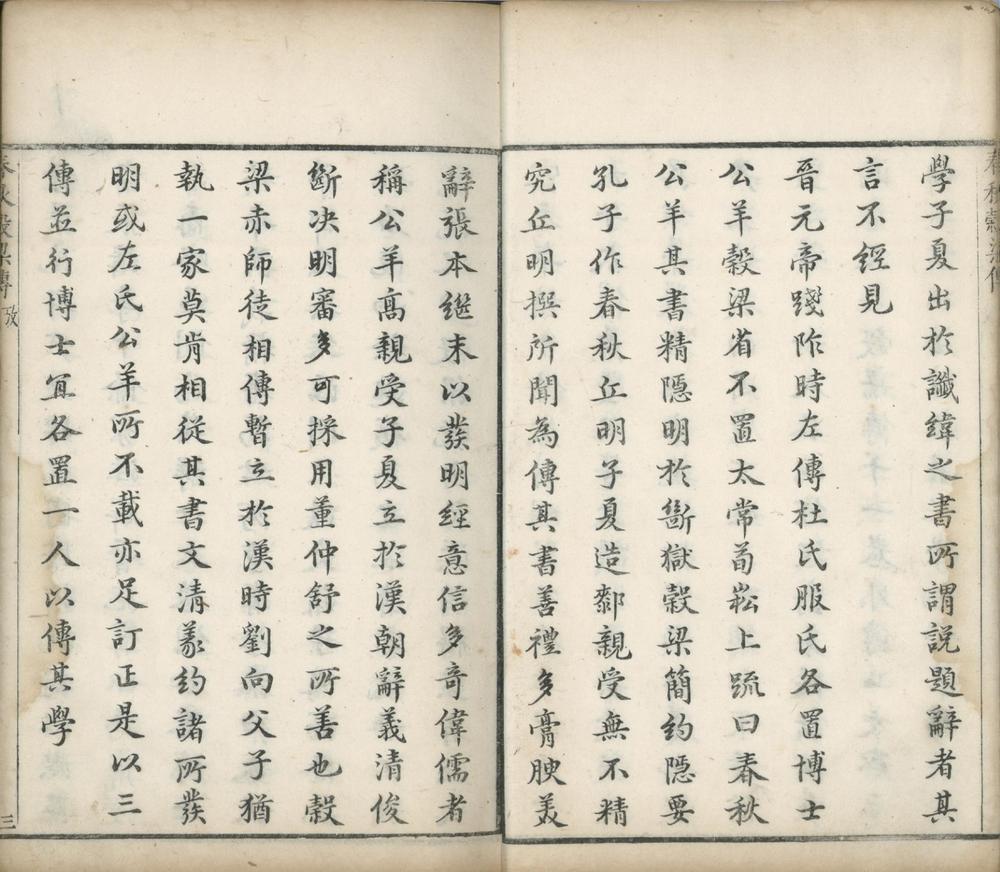 學子夏出於讖緯之書所謂説題辭者其
言不經見
晉元帝踐阼時左傳杜氏服氏各置博士
公羊榖梁省不置太常荀崧上疏曰春秋
公羊其書精隠明於斷獄榖梁簡約隠要
孔子作春秋丘明子夏造䣛親受無不精
究丘明撰所聞為傳其書善禮多膏腴美
辭張本継末以發明經意信多奇偉儒者
稱公羊髙親受子夏立於漢朝辭義清俊
斷决明審多可採用董仲舒之所善也榖
梁赤師徒相傳暫立於漢時劉向父子猶
執一家莫肯相從其書文清義約諸所發
明或左氏公羊所不載亦足訂正是以三
傳並行博士宜各置一人以傳其學
春秋榖梁傳 攷
三